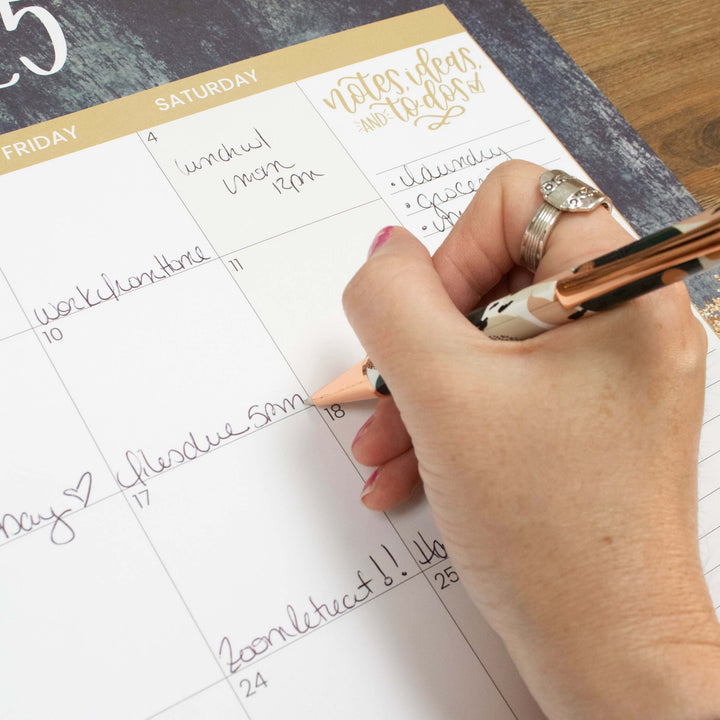 25
FRIDAY
SATURDAY
notes, ideas,
AND to-dos
4
lunch w/
mom
12pm
• laundry
•
•
work from Home
10
11
files due 5pm
17
18
Zoom retreat!!
24
25